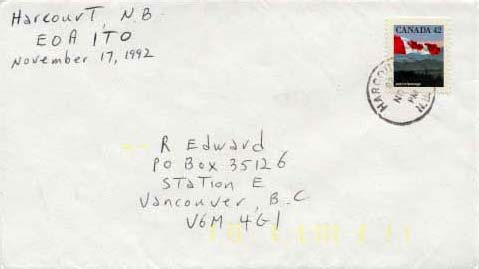 Harcourt, N.B.
E0A 1T0
November 17, 1992
CANADA 42
HARCOU
N.B.
PM
R Edward
PO Box 35126
Station E
Vancouver, B.C.
V6M 4G1